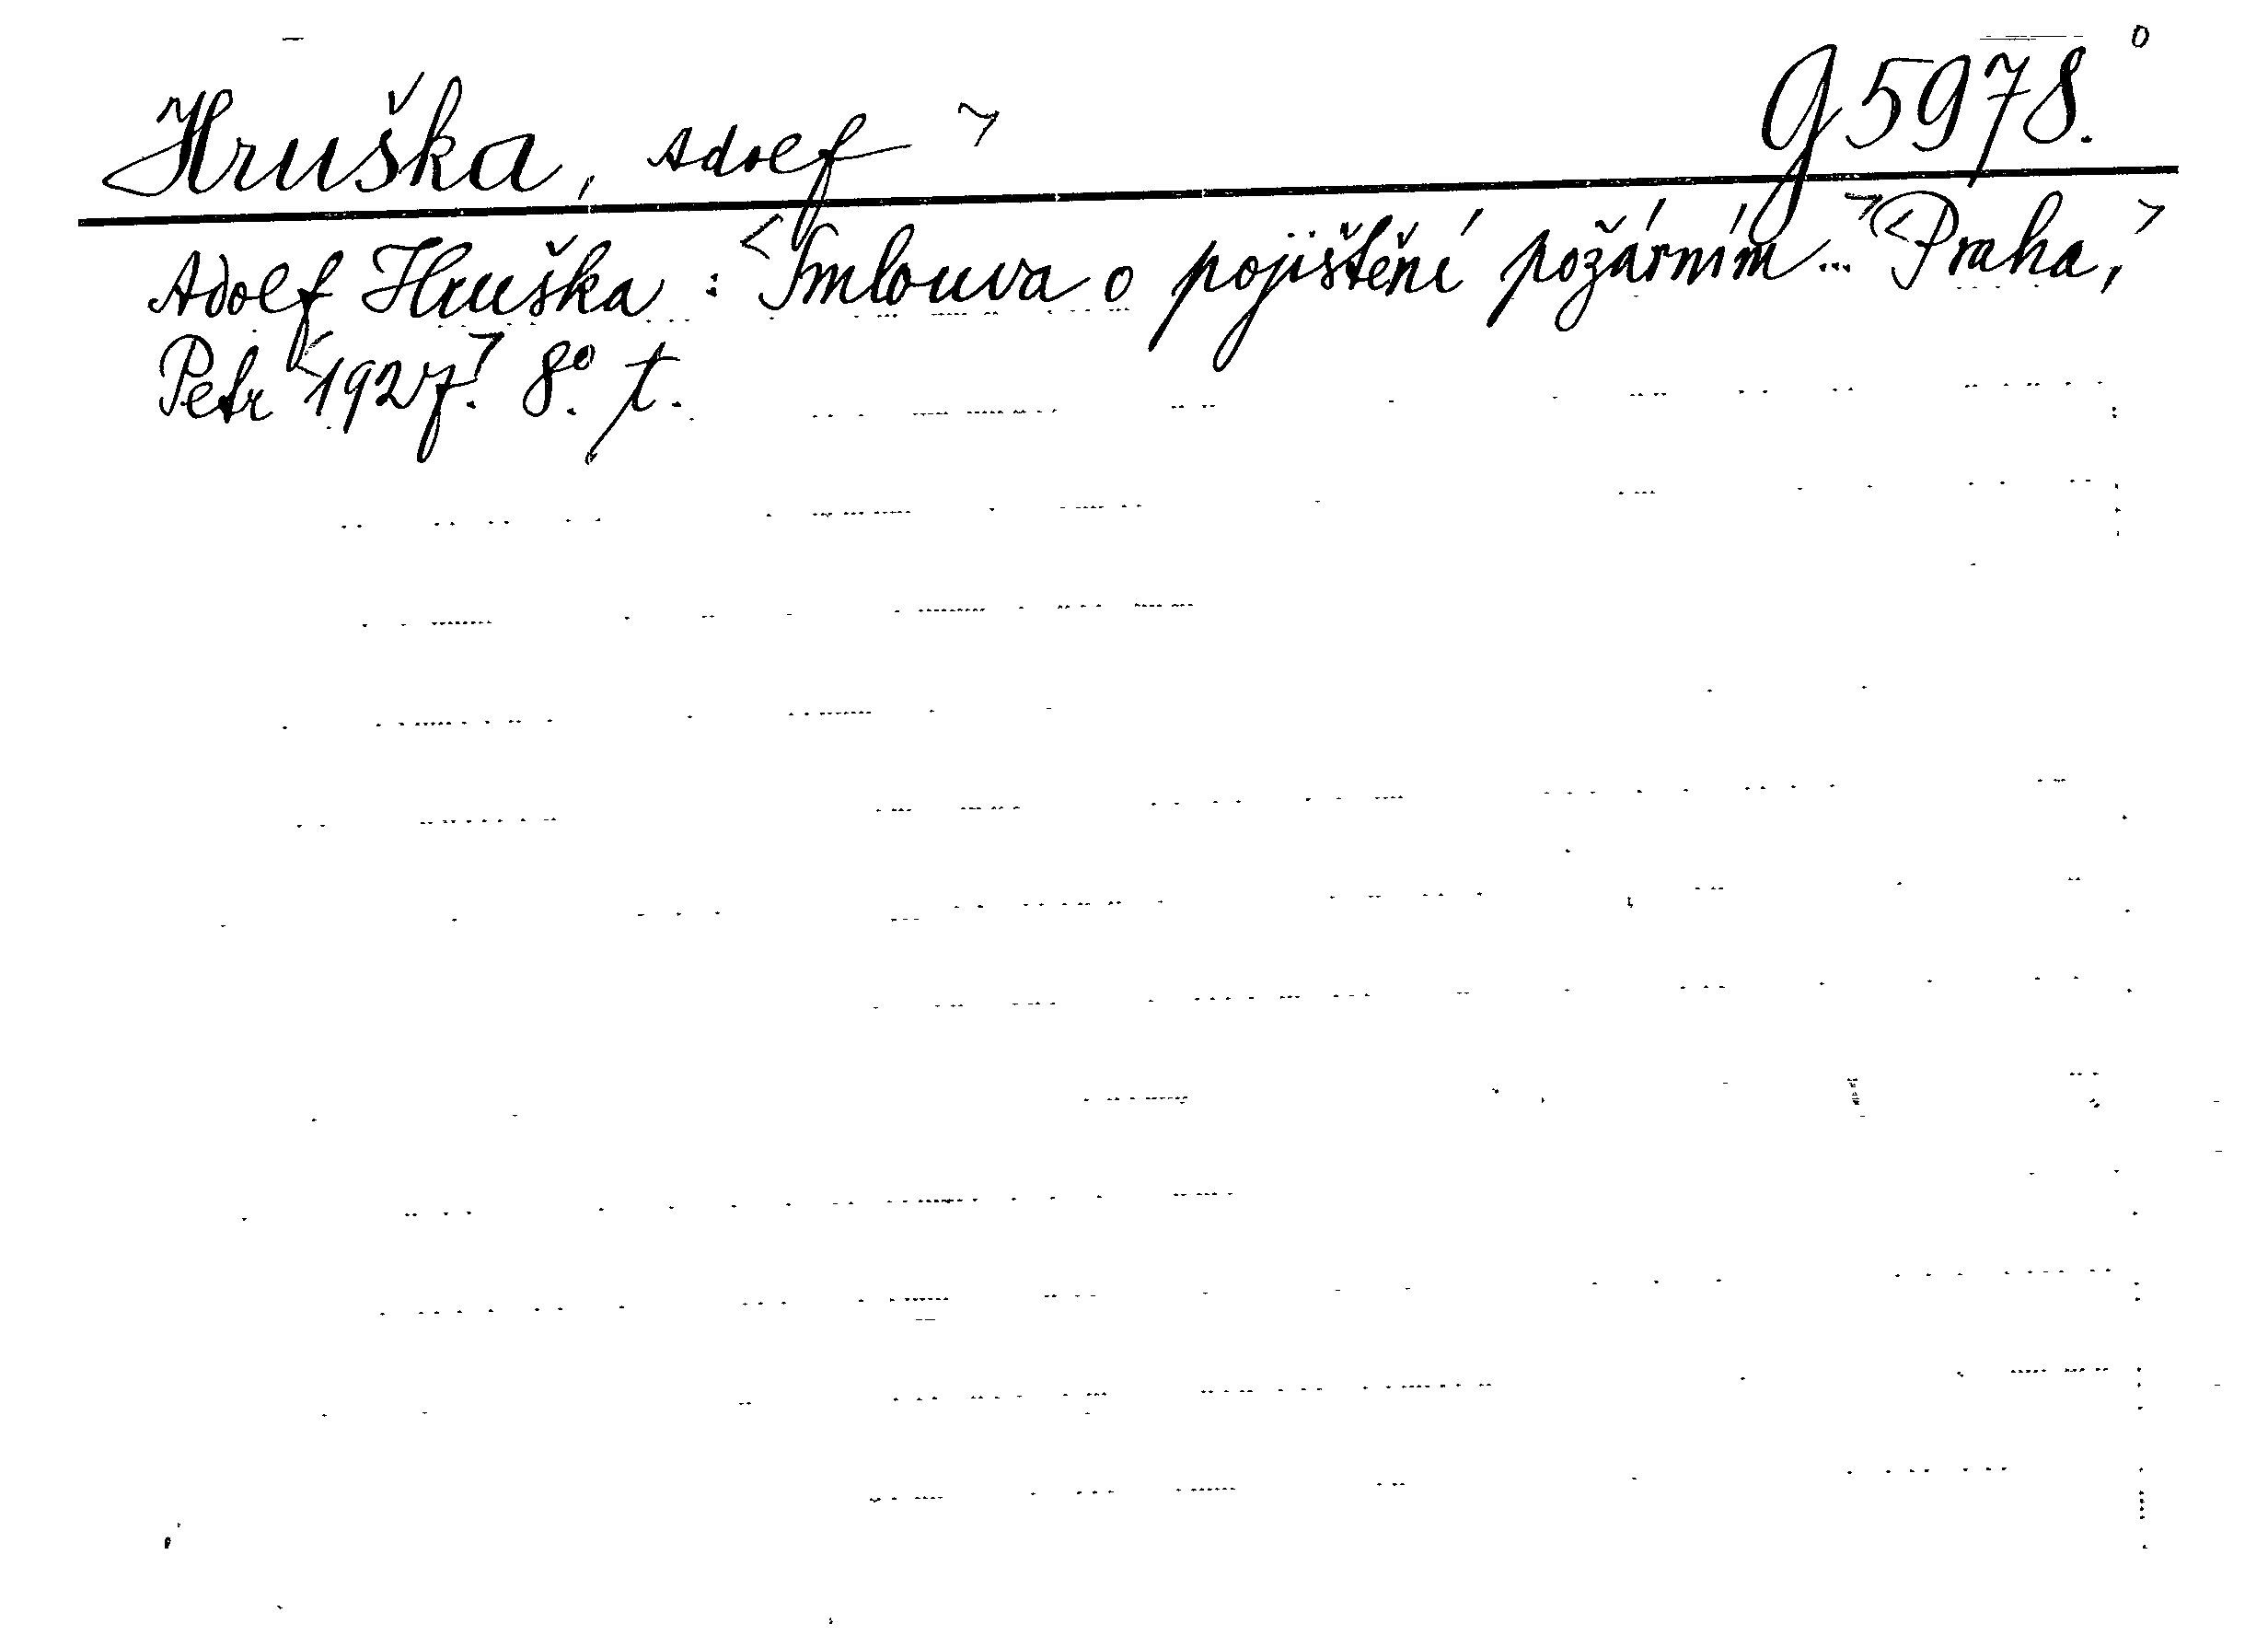 Hruška, Adolf > G 5978.
Adolf Hruška : <Smlouva o pojištění požárním...> <Praha,>
Petr <1927.> 8°. t.